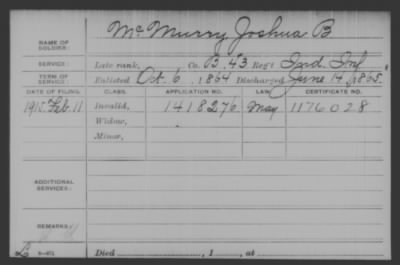 NAME OF SOLDIER: McMurry Joshua B
SERVICE: Late rank, Co. B, 43 Reg't Ind. Inf.
TERM OF SERVICE: Enlisted Oct. 6, 1864 Discharged June 14, 1865.
DATE OF FILING. CLASS. APPLICATION NO. LAW. CERTIFICATE NO.
Feb 11 Invalid, 1418276 May 1176028
Widow,
Minor,
ADDITIONAL SERVICES:
REMARKS:
Died , 1 , at